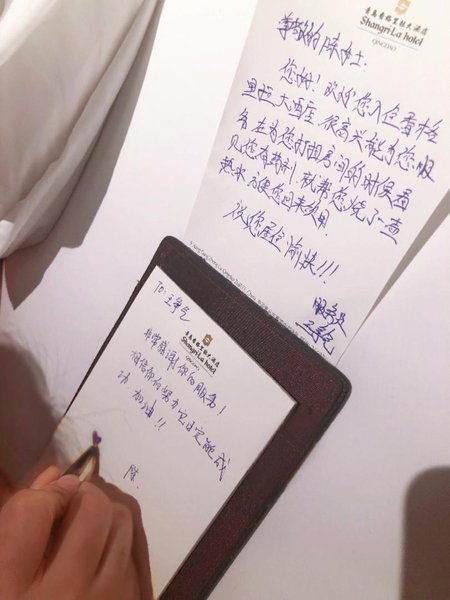 青岛香格里拉大酒店
Shangri-La hotel
QINGDAO
尊敬的陈女士:
您好! 欢迎您入住香格
里拉大酒店 很高兴能为您服
务 在为您打扫房间的时候看
见您有 就帮您烧了一壶
热水 方便您回来饮用
祝您居住愉快!!!
服务员
王争气
To: 王争气
Shangri-La hotel
QINGDAO
非常感谢你的服务!
相信你的努力 它日定能成
功 加油!!
陈